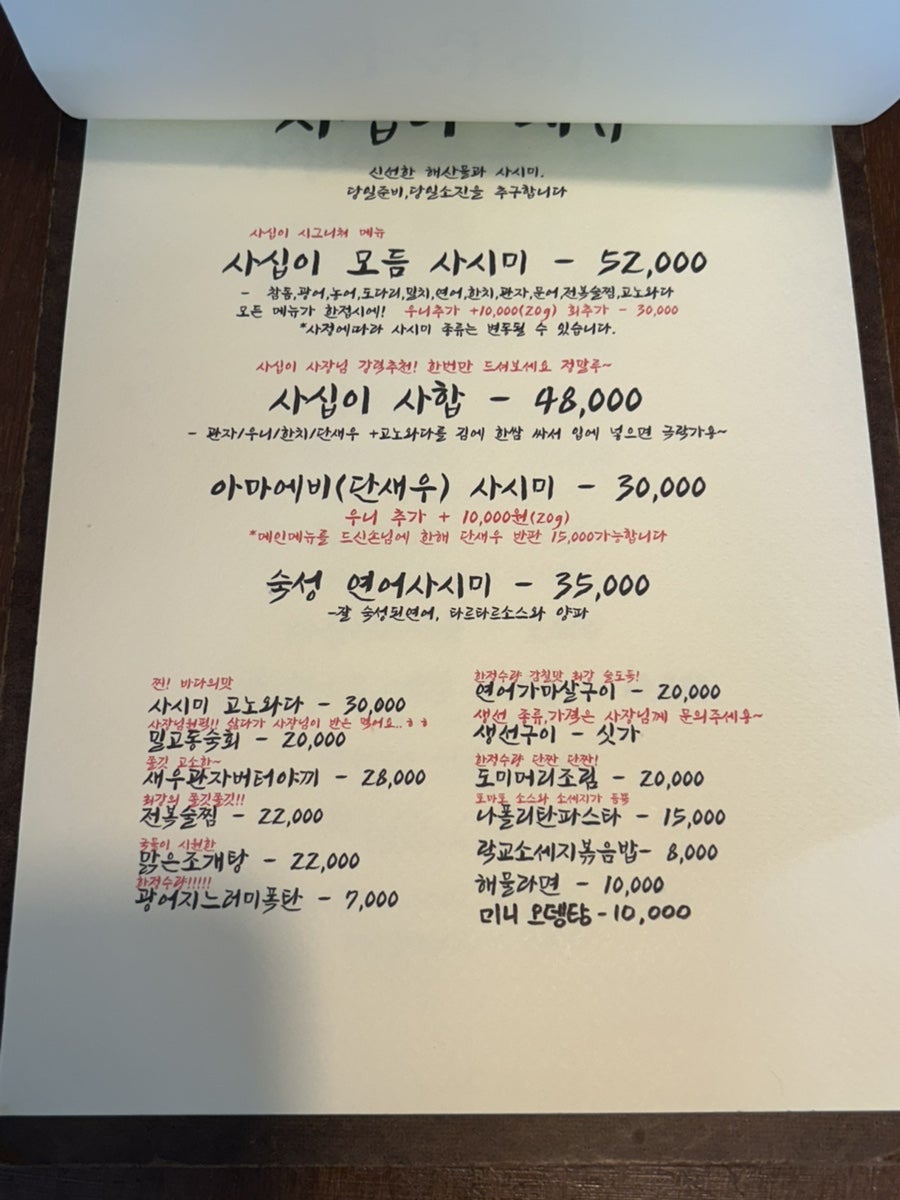 신선한 해산물과 사시미.
당일준비,당일소진을 추구합니다
사십이 시그니쳐 메뉴
사십이 모듬 사시미 - 52,000
- 참돔,광어,농어,도다리,밀치,연어,한치,관자,문어,전복술찜,고노와다
모든 메뉴가 한접시에! 우니추가 +10,000(20g) 회추가 - 30,000
*사정에따라 사시미 종류는 변동될 수 있습니다.
사십이 사장님 강력추천! 한번만 드셔보세요 정말루~
사십이 사합 - 48,000
- 관자/우니/한치/단새우 +고노와다를 김에 한쌈 싸서 입에 넣으면 극락가용~
아마에비(단새우) 사시미 - 30,000
우니 추가 + 10,000원(20g)
*메인메뉴를 드신손님에 한해 단새우 반판 15,000가능합니다
숙성 연어사시미 - 35,000
-잘 숙성된연어, 타르타르소스와 양파
찐! 바다의맛
사시미 고노와다 - 30,000
사장님원픽!! 삶다가 사장님이 반은 먹어요..ㅎㅎ
밀고동숙회 - 20,000
쫄깃 고소한~
새우관자버터야끼 - 28,000
최강의 쫄깃쫄깃!!
전복술찜 - 22,000
국물이 시원한
맑은조개탕 - 22,000
한정수량!!!!!
광어지느러미폭탄 - 7,000
한정수량 감칠맛 최강 술도둑!
연어가마살구이 - 20,000
생선 종류,가격은 사장님께 문의주세용~
생선구이 - 싯가
한정수량 단짠 단짠!
도미머리조림 - 20,000
토마토 소스와 소세지가 듬뿍
나폴리탄파스타 - 15,000
락교소세지볶음밥- 8,000
해물라면 - 10,000
미니 오뎅탕 -10,000